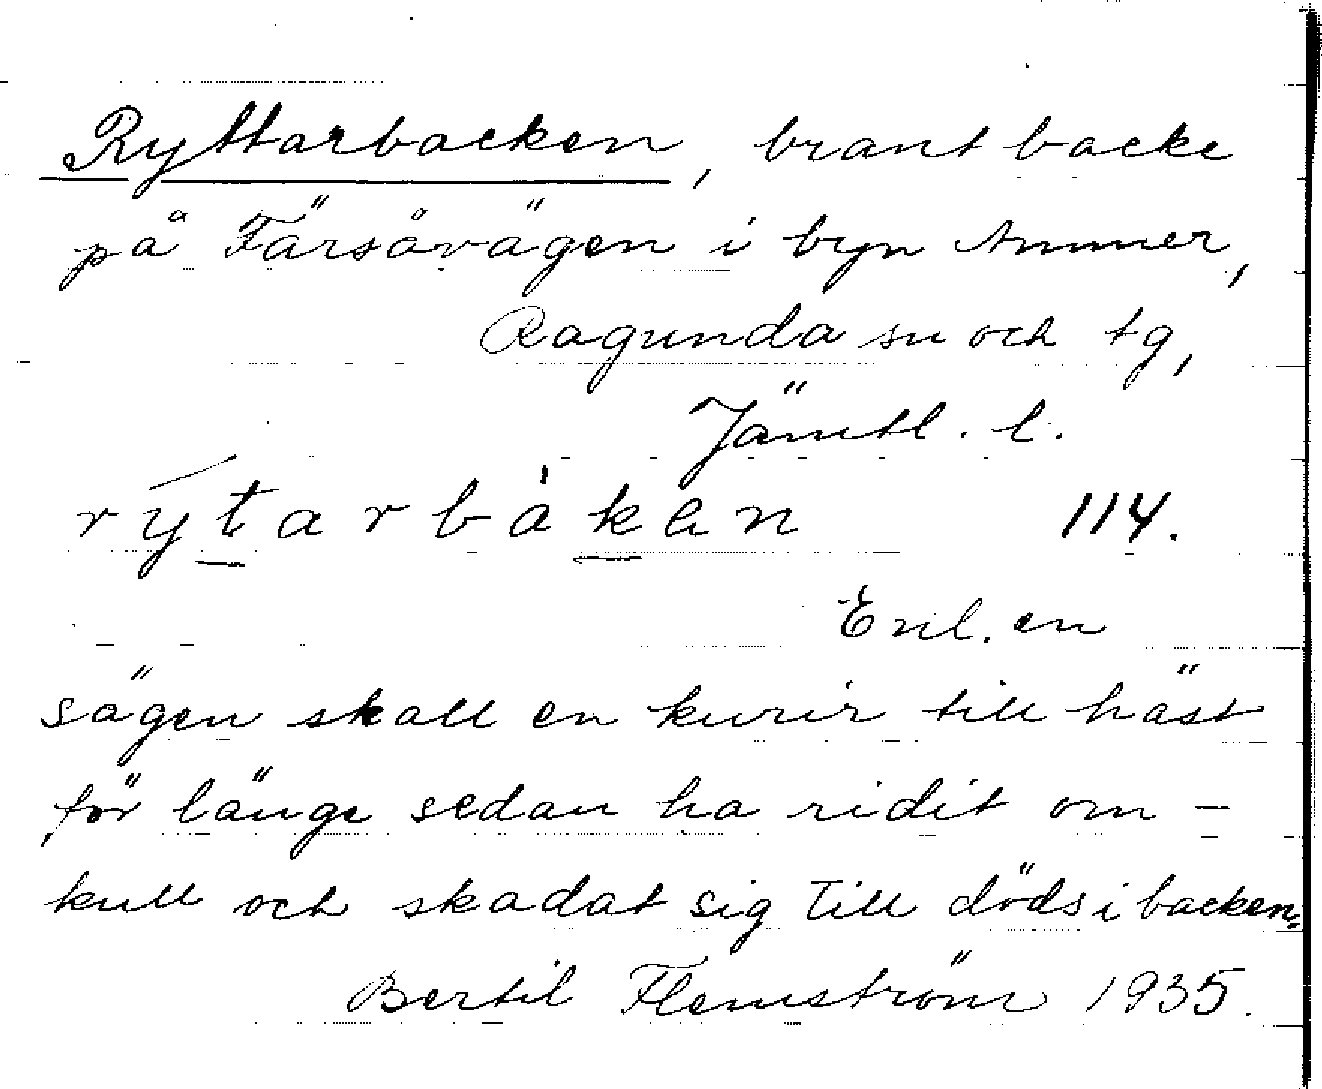 Ryttarbacken, brant backe
på Färsåvägen i byn Ammer,
Ragunda sn och tg,
Jämtl. l.
rýtarbàkan 114.
Enl. en
sägen skall en kurir till häst
för länge sedan ha ridit om-
kull och skadat sig till döds i backen.
Bertil Flemström 1935.